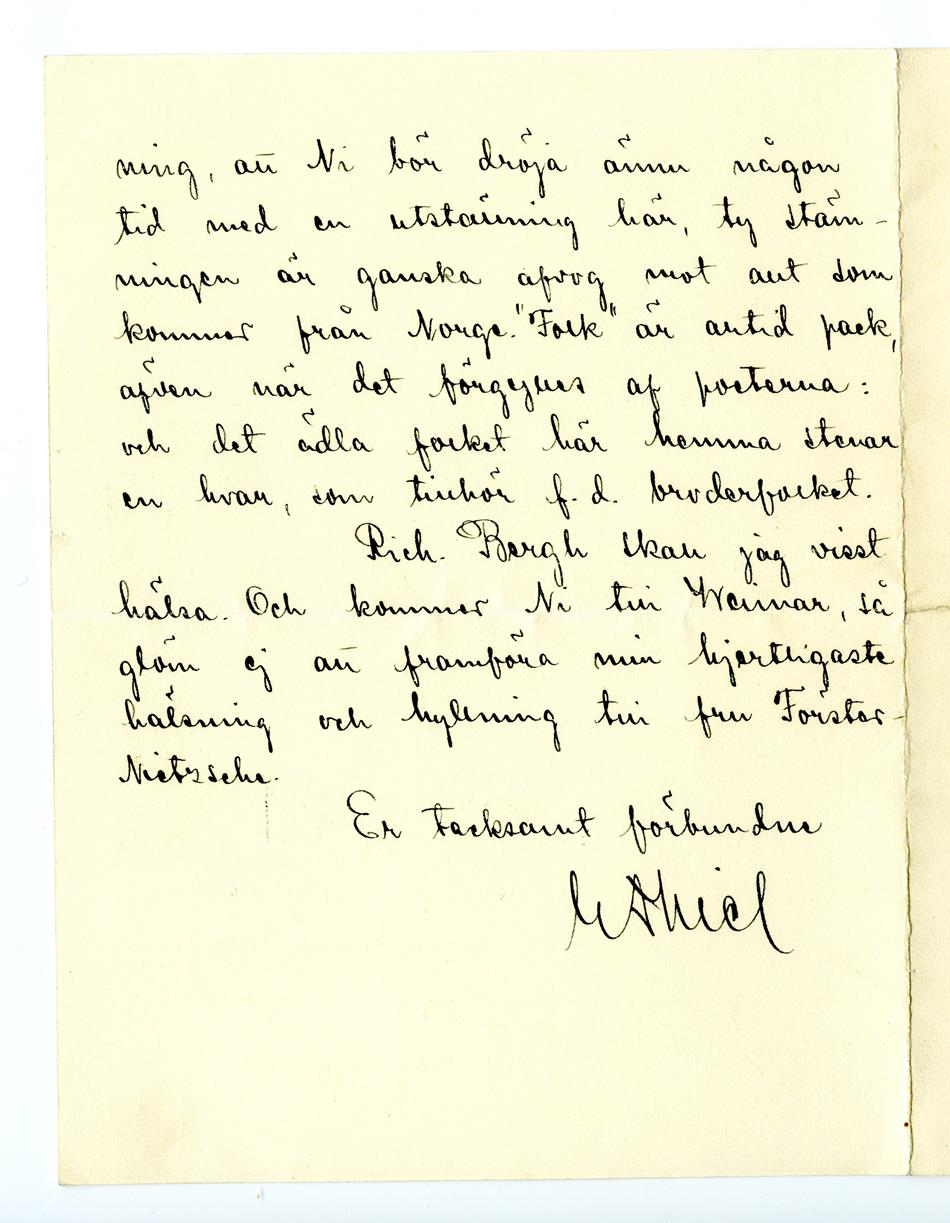 ning, att Ni bör dröja ännu någon
tid med en utställning här, ty stäm-
ningen är ganska afvog mot allt som
kommer från Norge. "Folk" är alltid pack,
äfven när det förgylles af poeterna:
och det ädla folket här hemma stenar
en hvar, som tillhör f. d. broderfolket.
Rich. Bergh skall jag visst
hälsa. Och kommer Ni till Weimar, så
glöm ej att framföra min hjertligaste
hälsning och hyllning till fru Förster-
Nietzsche.
Er tacksamt förbundne
E Thiel